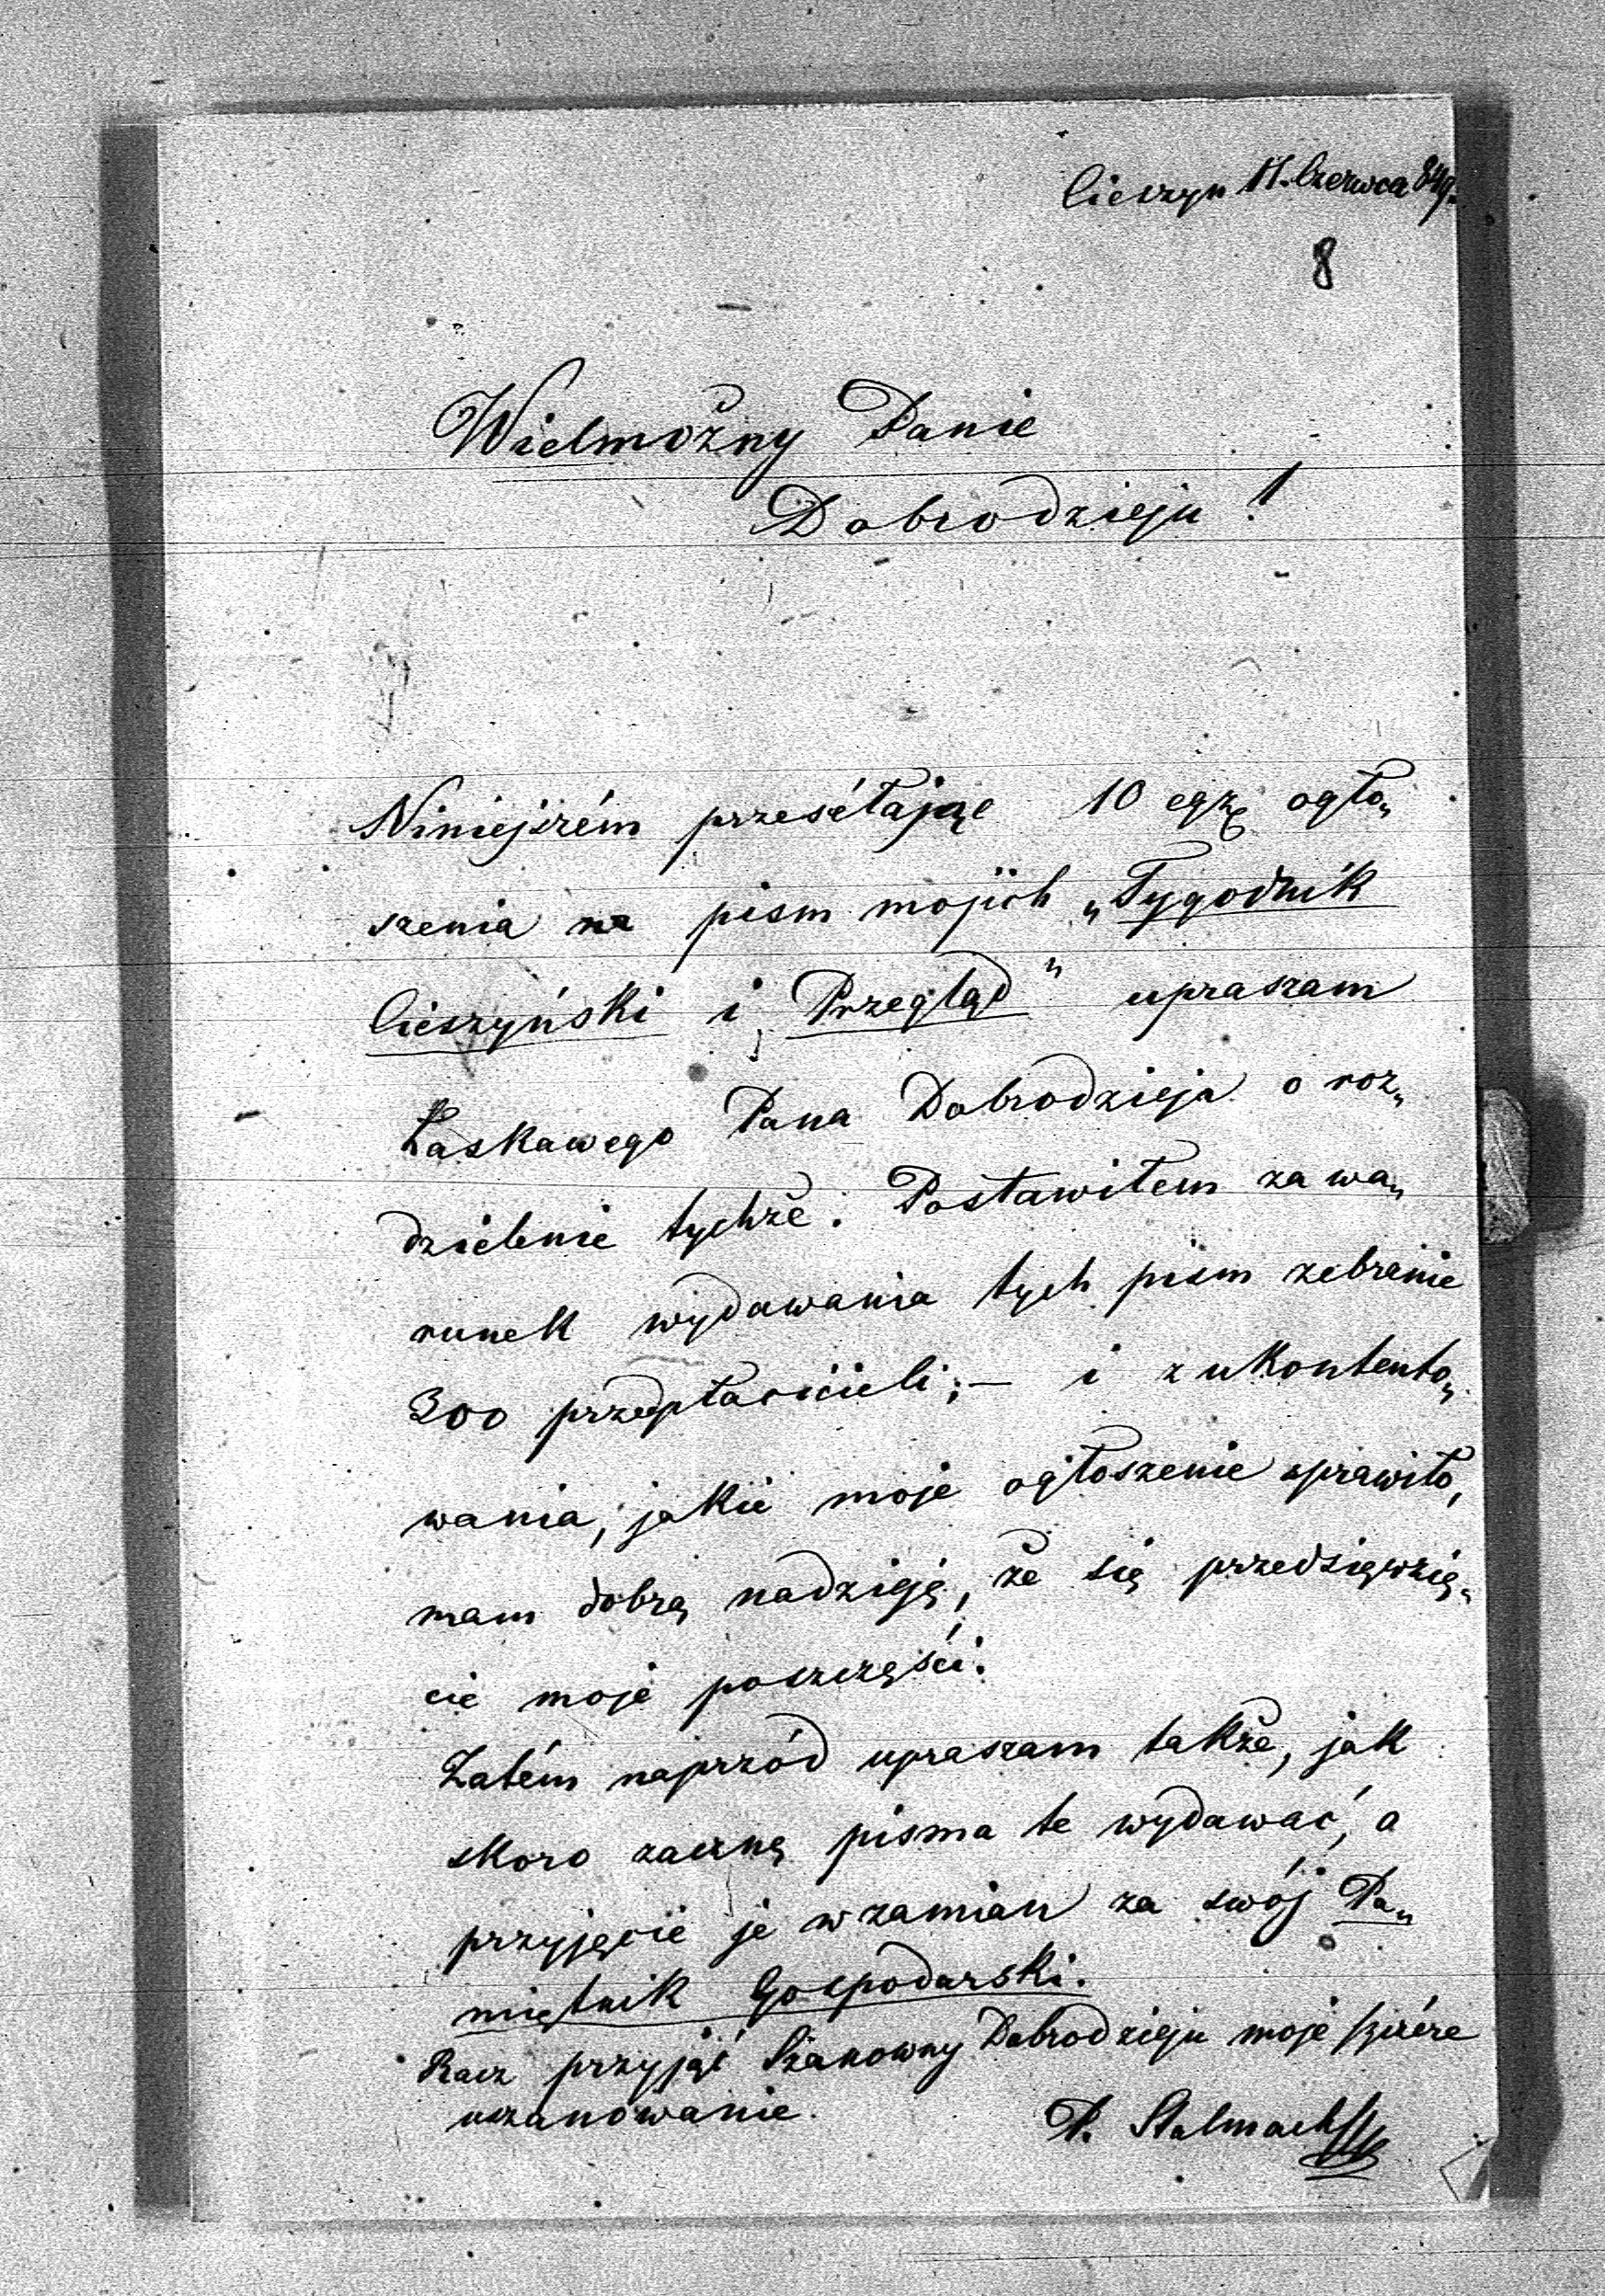 Cieszyn 11. Czerwca 849.
8
Wielmożny Panie
Dobrodzieju!
Niniejszém przesełając 10 egz. ogło„
szenia na pism mojich „Tygodnik
Cieszyński i Przegląd” upraszam
Łaskawego Pana Dobrodzieja o roz„
dzielenie tychże. Postawiłem za wa„
runek wydawania tych pism zebranie
300 przedpłacicieli; – i z ukontento„
wania, jakie moje ogłoszenie sprawiło,
mam dobrą nadzieję, że się przedsięwzię„
cie moje poszczęści.
Zatém naprzód upraszam także, jak
skoro zacznę pisma te wydawać, o
przyjęcie je w zamian za swój Pa„
miętnik Gospodarski.
Racz przyjąć Szanowny Dobrodzieju moje szczére
uszanowanie.
P. Stalmach